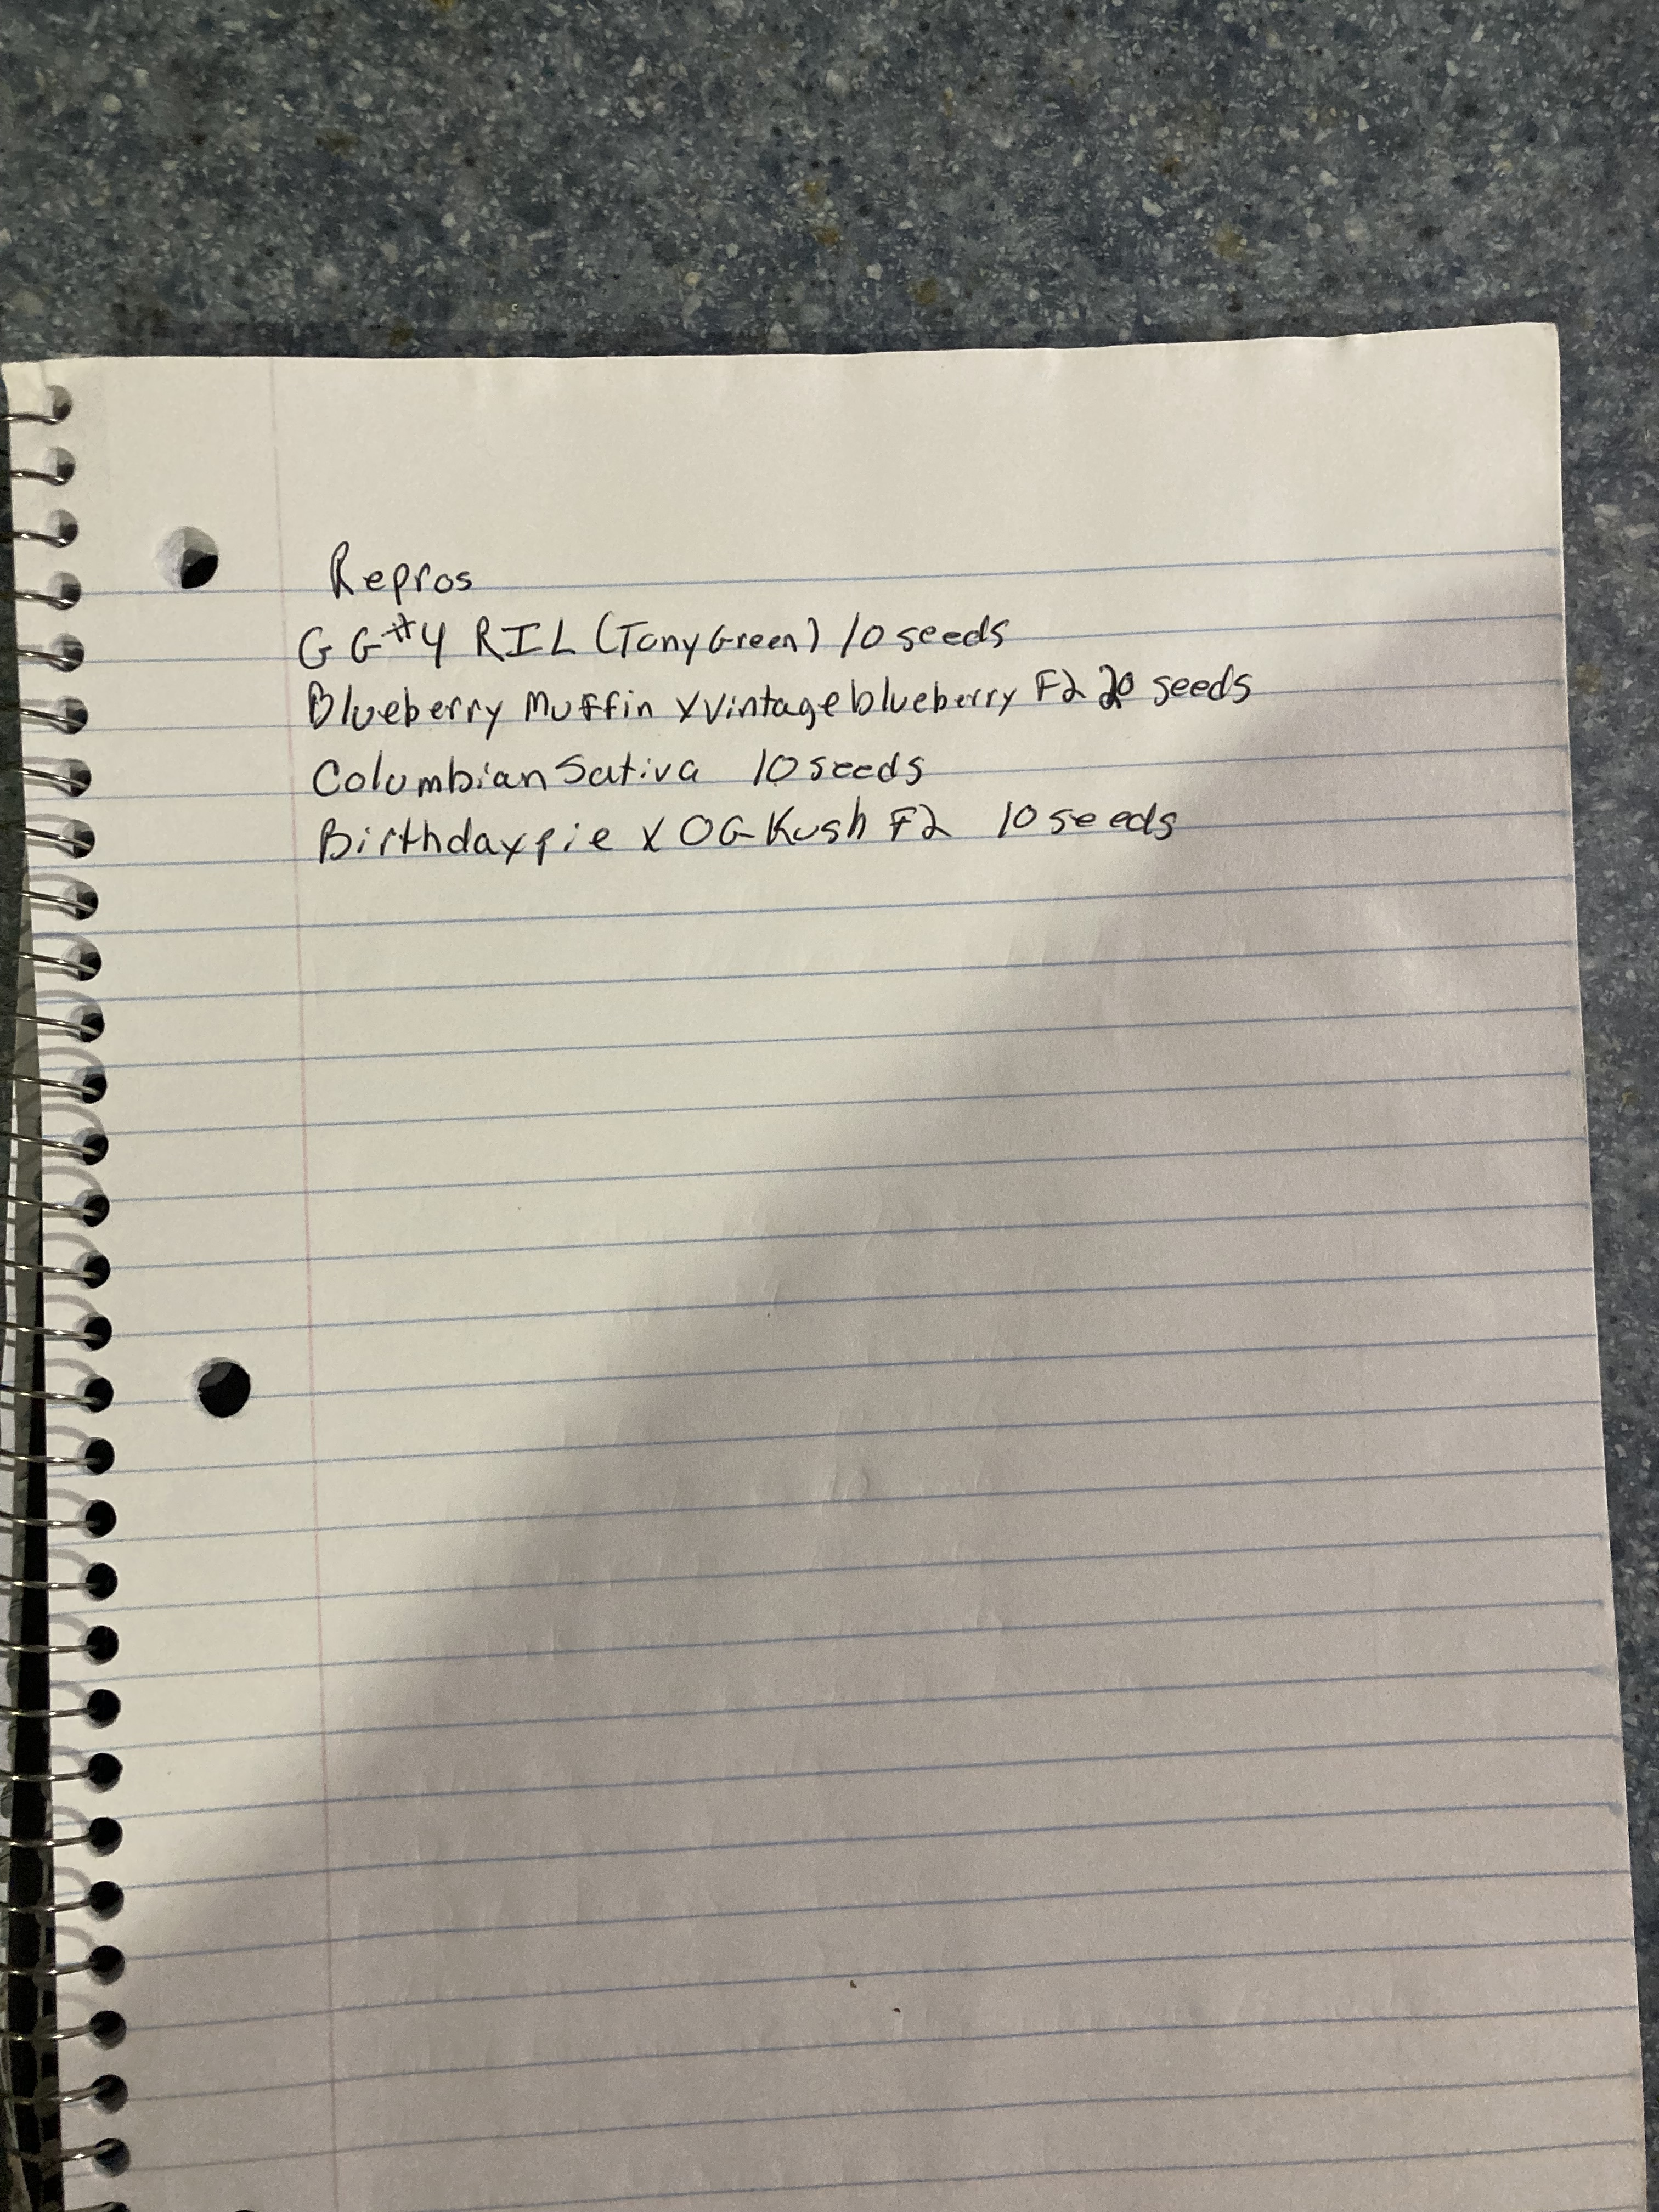 Repros
GG#4 RIL (Tony Green) 10 seeds
Blueberry Muffin X vintage blueberry F2 20 seeds
Columbian Sativa 10 seeds
Birthday pie X OG Kush F2 10 seeds